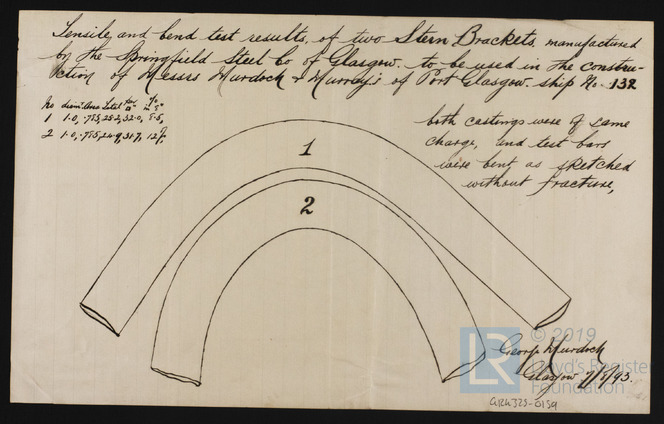 Tensile and bend test results, of two Stern Brackets, manufactured
by the Springfield Steel Co of Glasgow. to be used in the constru-
ction of Messrs Murdock & Murray's of Port Glasgow. ship No. 132
No diam. Area Total
1 1.0, .785, 25.2, 32.0, 8.5,
2 1.0, .785, 24.9, 31.7, 12
both castings were of same
charge, and test bars
were bent as sketched
without fracture,
1
2
George Murdoch
Glasgow 7/8/93.
© 2019
LR
Lloyd's Register
Foundation